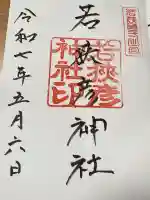 若狭彦神社
若狭彦
神社印
令和七年五月六日